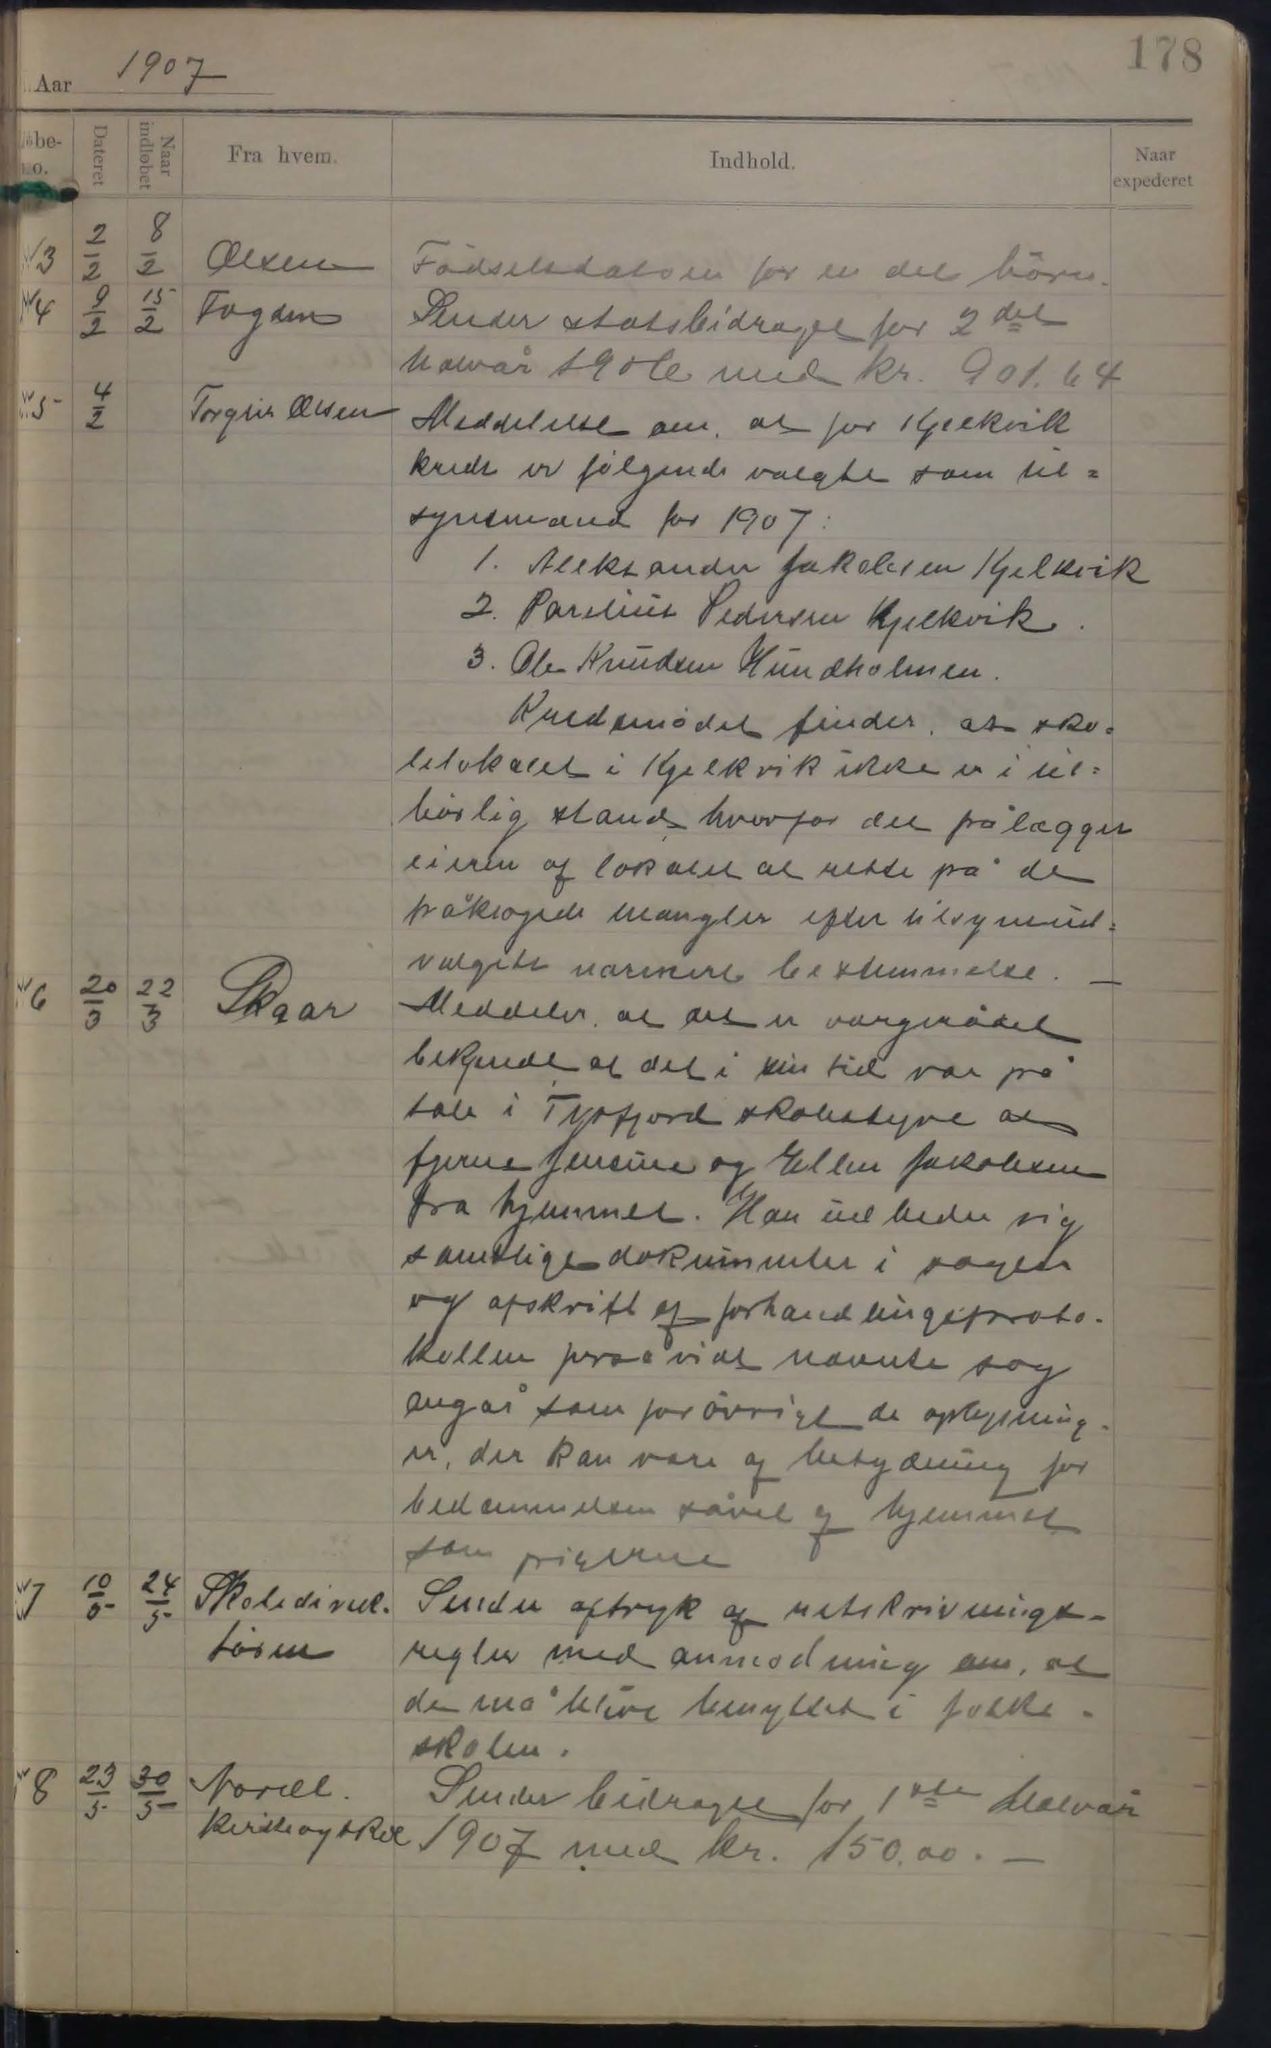 178
Aar 1907
øbe-
no.
Dateret
Naar
indløbet
Fra hvem.
Indhold.
Naar
expederet
3 2/2 8/2 Olsen Fødselsdatoen for en del börn.
4 9/2 15/2 Fogden Sender statsbidraget for 2det
halvår 1906 med kr. 901.64
5 4/2 Torgeir Olsen Meddelelse om, at for Kjelkvik
kreds er følgende valgte som til=
synsmænd for 1907:
1. Aleksander Jakobsen Kjelkvik
2. Parelius Pedersen Kjelkvik.
3. Ole Knudsen Hundholmen.
Kredsmødet finder, at sko=
lelokalet i Kjelkvik ikke er i til=
børlig stand, hvorfor det pålægger
eieren af lokalet at rette på de
påklagede mangler efter tilsynsud=
valgets nærmere bestemmelse. —
6 20/3 22/3 Skaar Meddeler, at det er værgerådet
bekjendt at det i sin tid var på
tale i Tysfjord skolestyre at
fjerne Jensine og Ellen Jakobsen
fra hjemmet. Han udbeder sig
samtlige dokumenter i sagen
og afskrift af forhandlingsproto-
kollen forsåvidt nævnte sag
angår som forövrigt de oplysning-
er, der kan være af betydning for
bedömmelsen såvel af hjemmet
som pigerne
7 10/5 24/5 Skoledirek- Sender aftryk af retskrivnings-
tören regler med anmodning om, at
de må blive benyttet i folke-
skolen.
8 23/5 30/5 Nordl. Sender bidraget for 1ste halvår
kirkeogskol 1907 med kr. 150.00. —